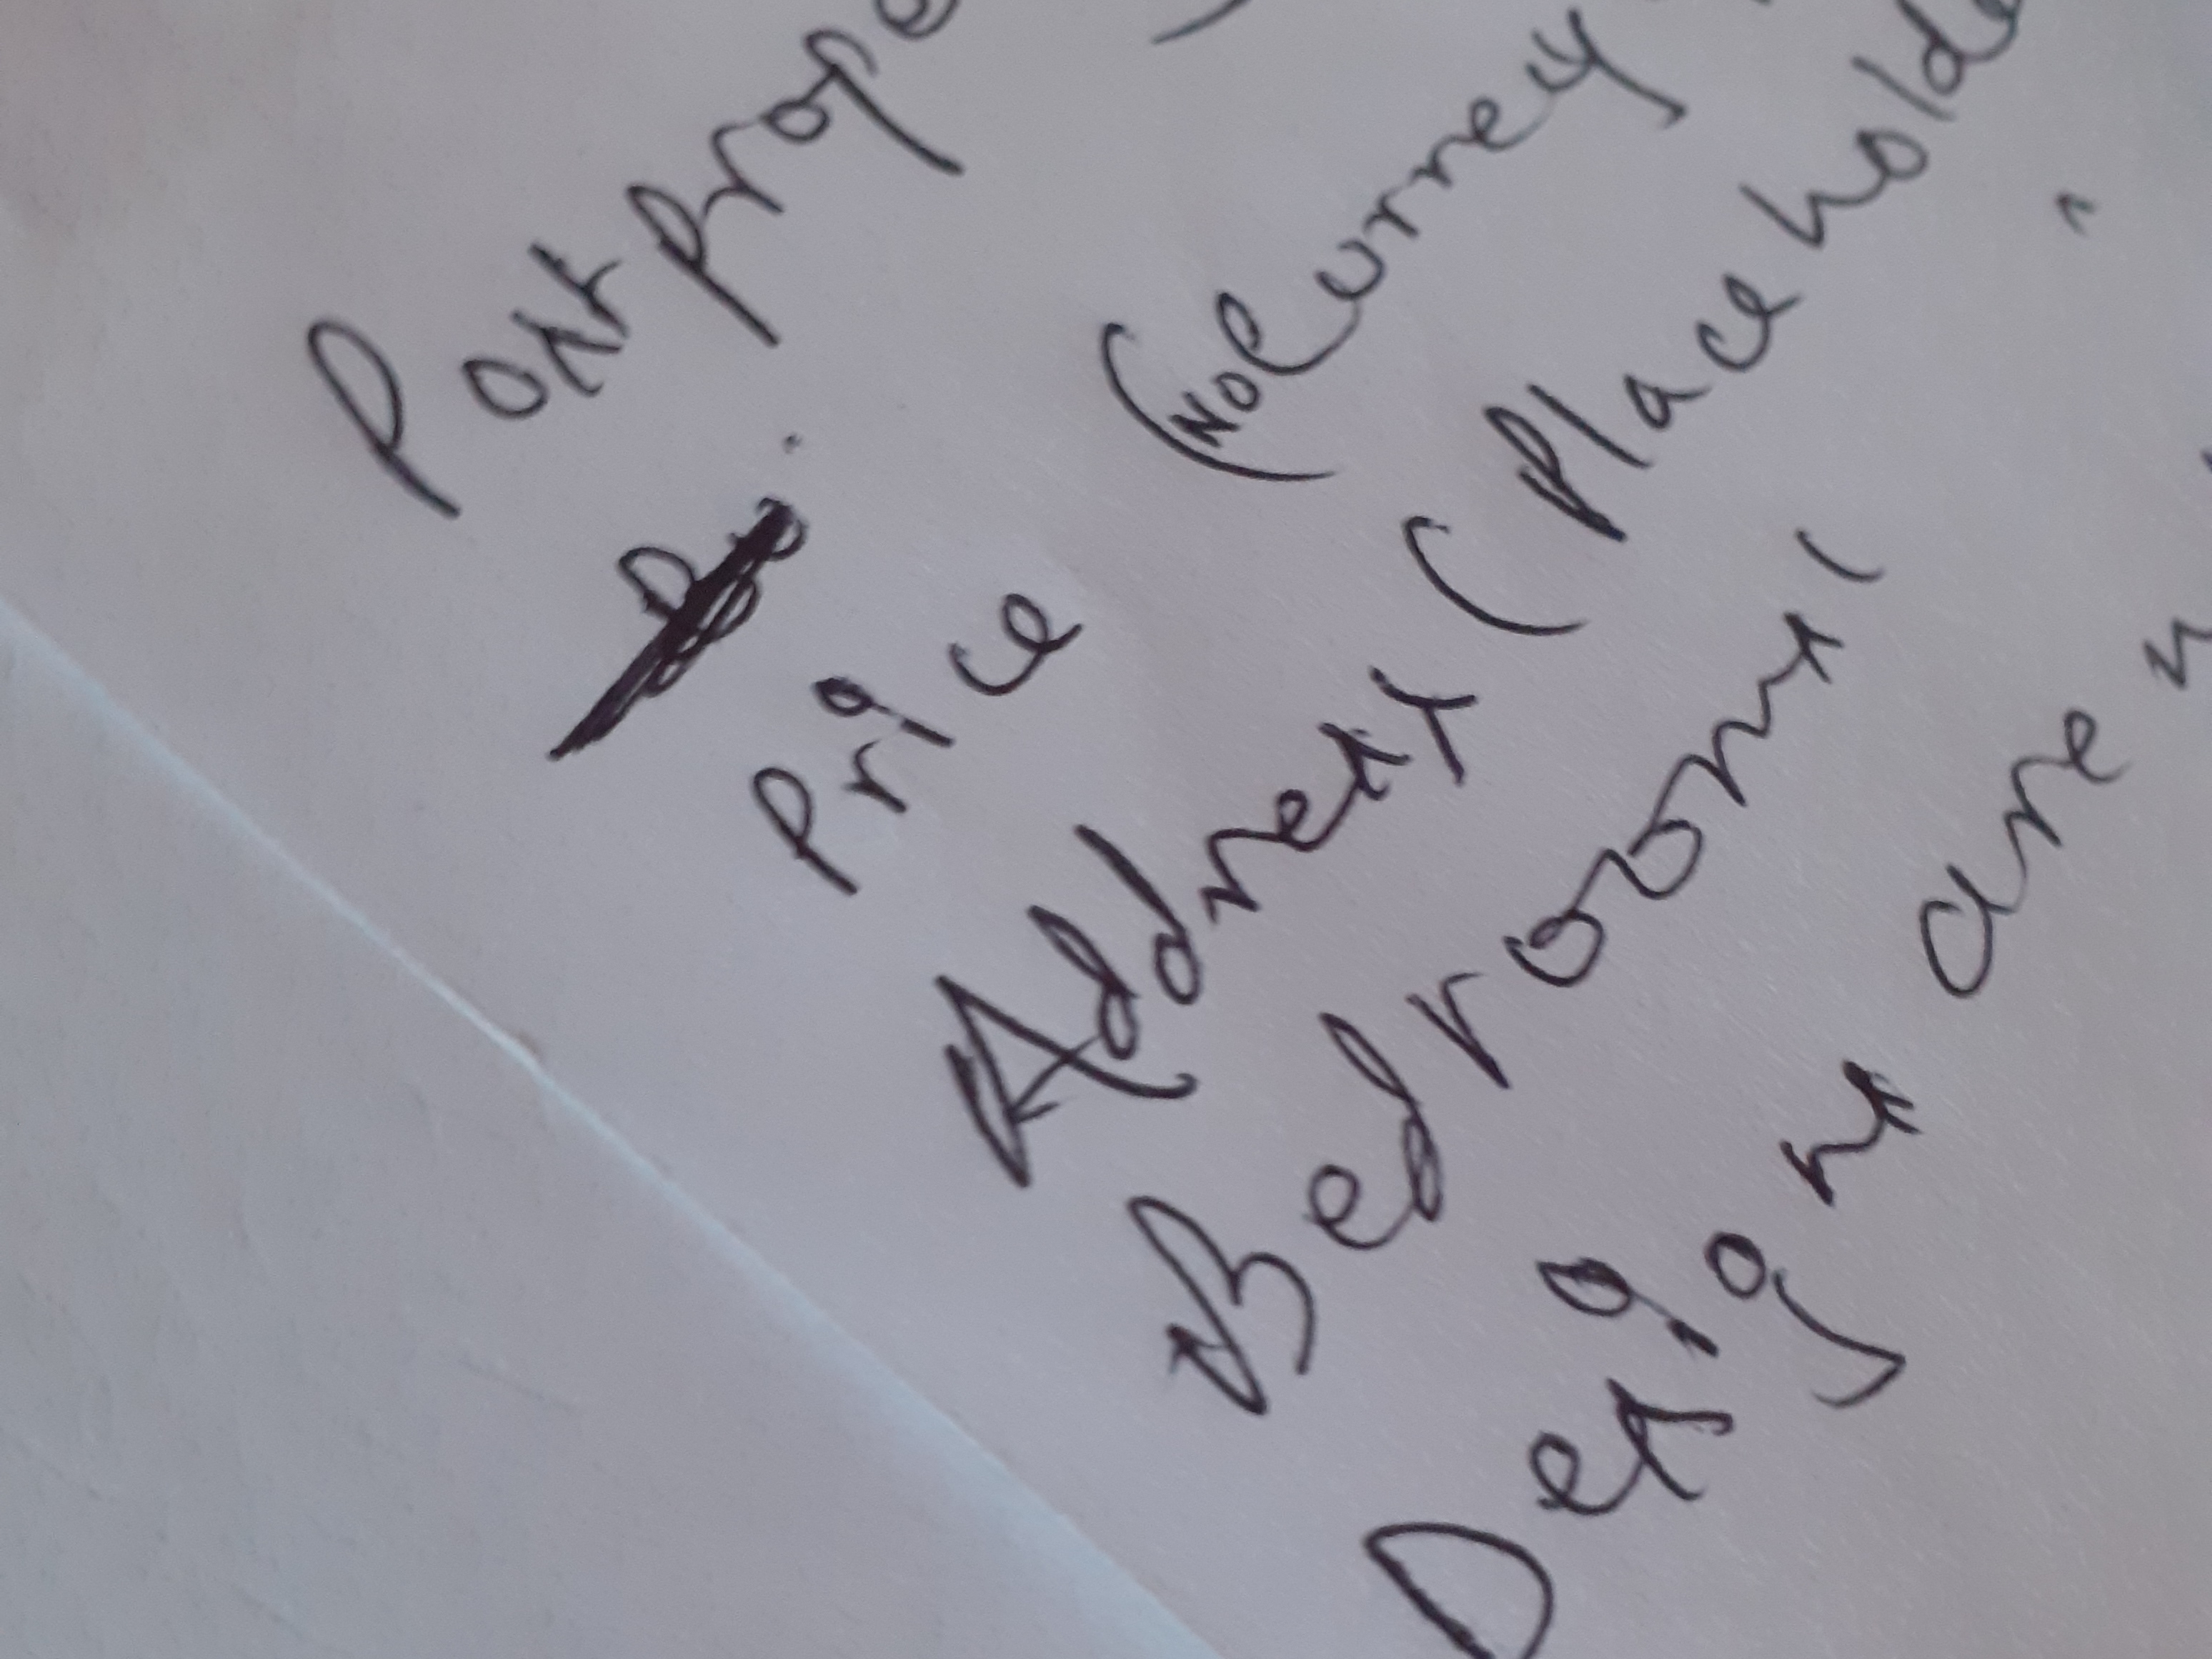 Post prope
Price (No Curney
Address (Place holde
Bedrooms (
Design are